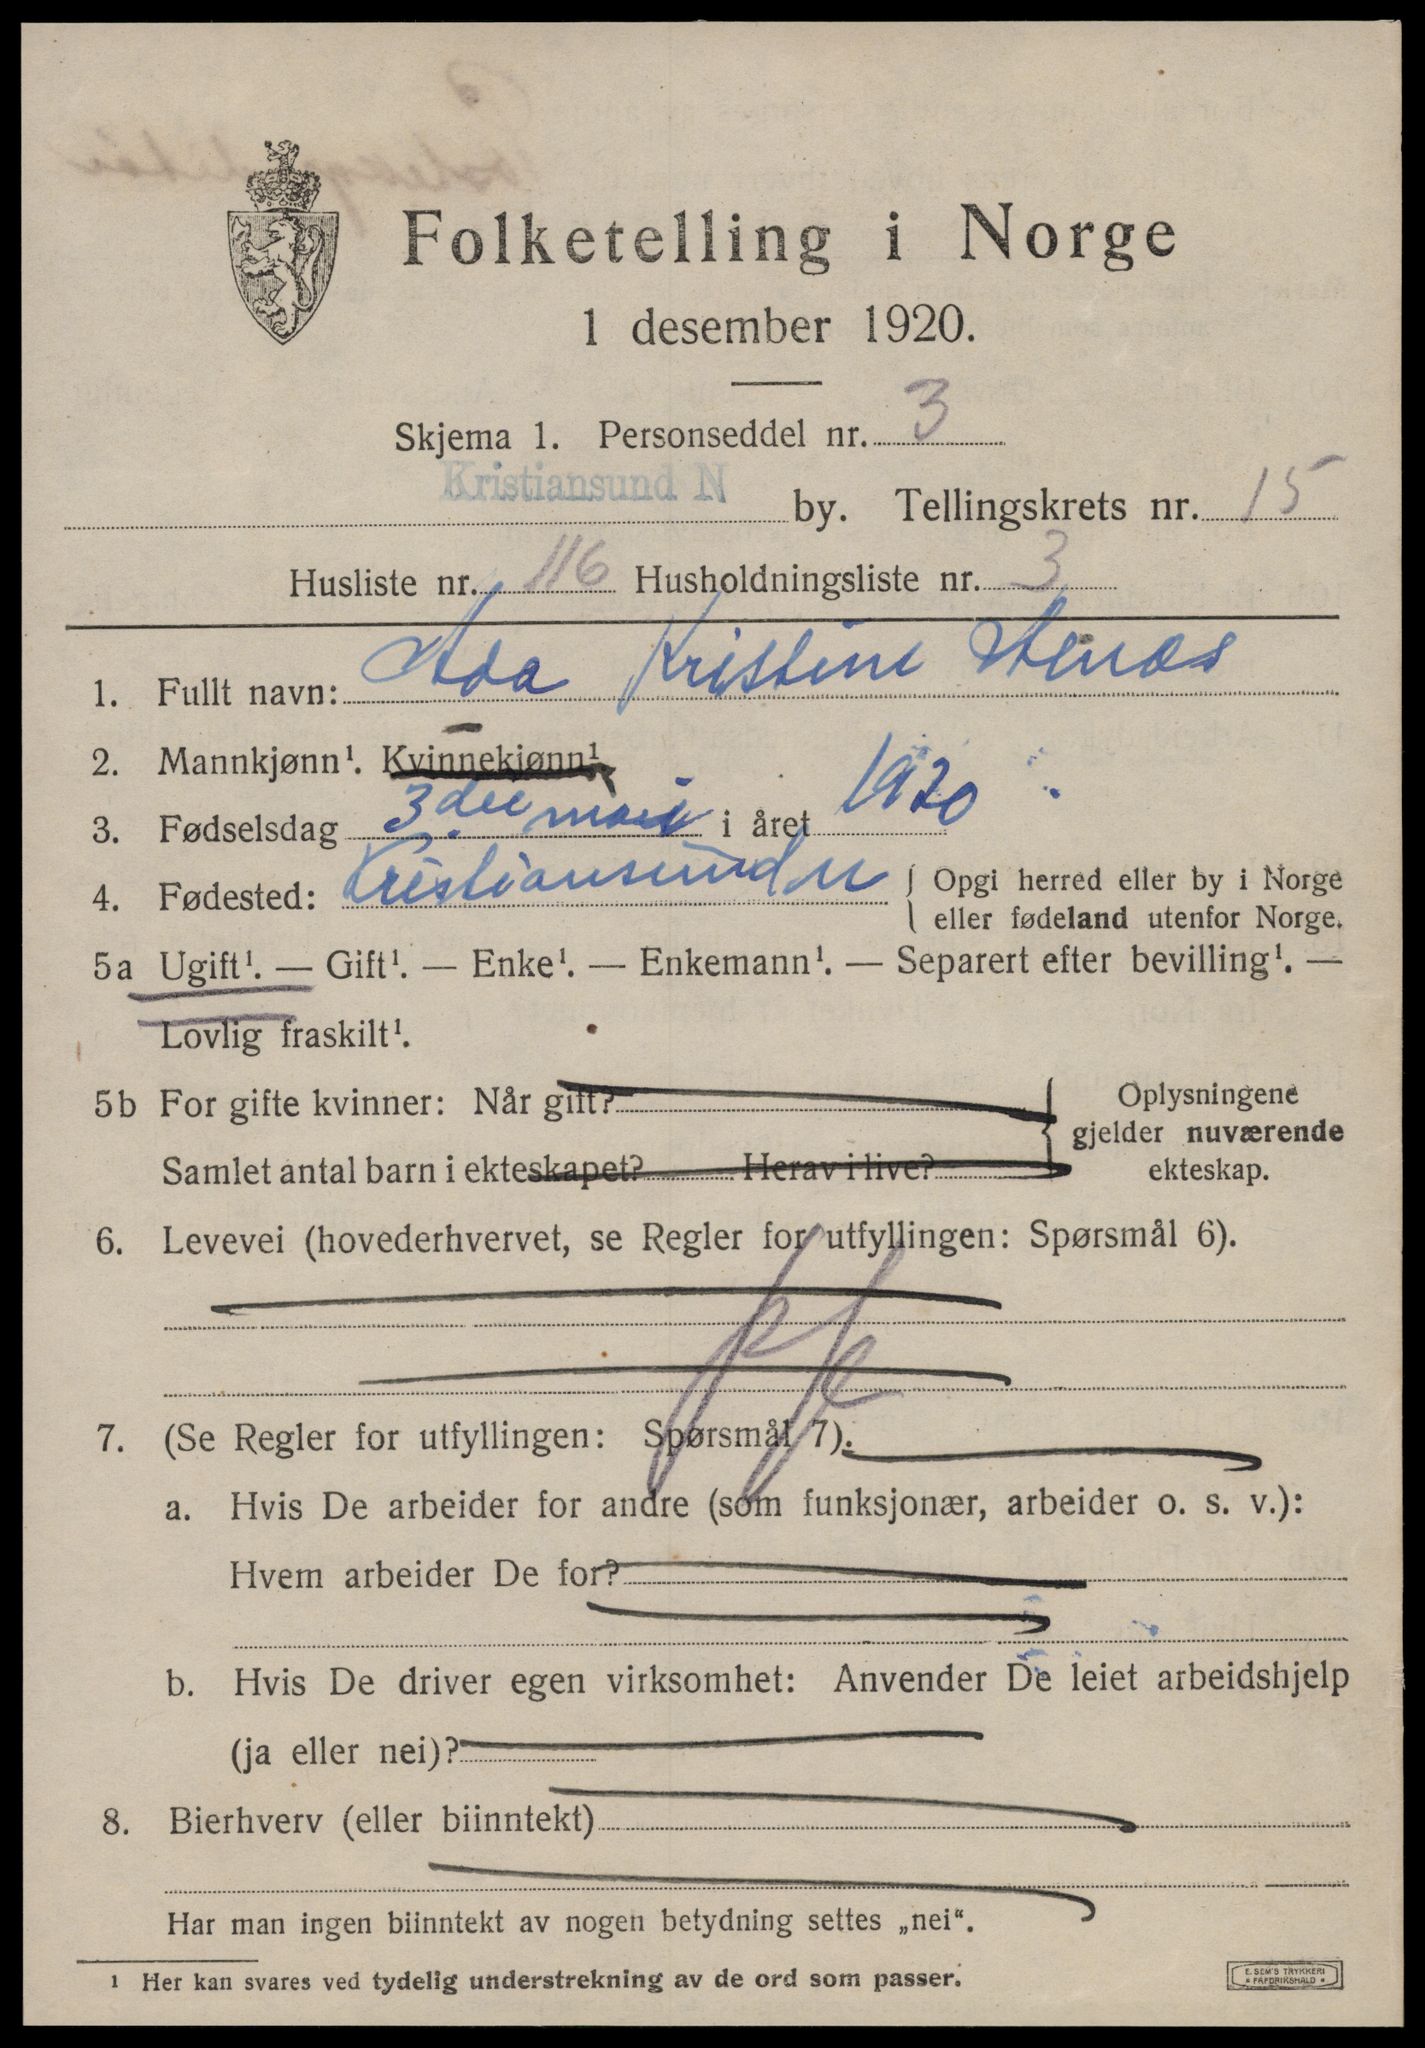 Folketelling i Norge
1 desember 1920.
Skjema 1. Personseddel nr. 3
Kristiansund N by. Tellingskrets nr. 15
Husliste nr. 116 Husholdningsliste nr. 3
1. Fullt navn: Ada Kristine Stenæs
2. Mannkjønn¹. Kvinnekjønn¹.
3. Fødselsdag 3die mai i året 1920
4. Fødested: Kristiansund N { Opgi herred eller by i Norge
eller fødeland utenfor Norge.
5a Ugift¹. — Gift¹. — Enke¹. — Enkemann¹. — Separert efter bevilling¹. —
Lovlig fraskilt¹.
5b For gifte kvinner: Når gift?
Samlet antal barn i ekteskapet? Herav i live?
Oplysningene
gjelder nuværende
ekteskap.
6. Levevei (hovederhvervet, se Regler for utfyllingen: Spørsmål 6).
7. (Se Regler for utfyllingen: Spørsmål 7).
a. Hvis De arbeider for andre (som funksjonær, arbeider o. s. v.):
Hvem arbeider De for?
b. Hvis De driver egen virksomhet: Anvender De leiet arbeidshjelp
(ja eller nei)?
8. Bierhverv (eller biinntekt)
Har man ingen biinntekt av nogen betydning settes „nei“.
¹ Her kan svares ved tydelig understrekning av de ord som passer.
E. SEM'S TRYKKERI
* FREDRIKSHALD *